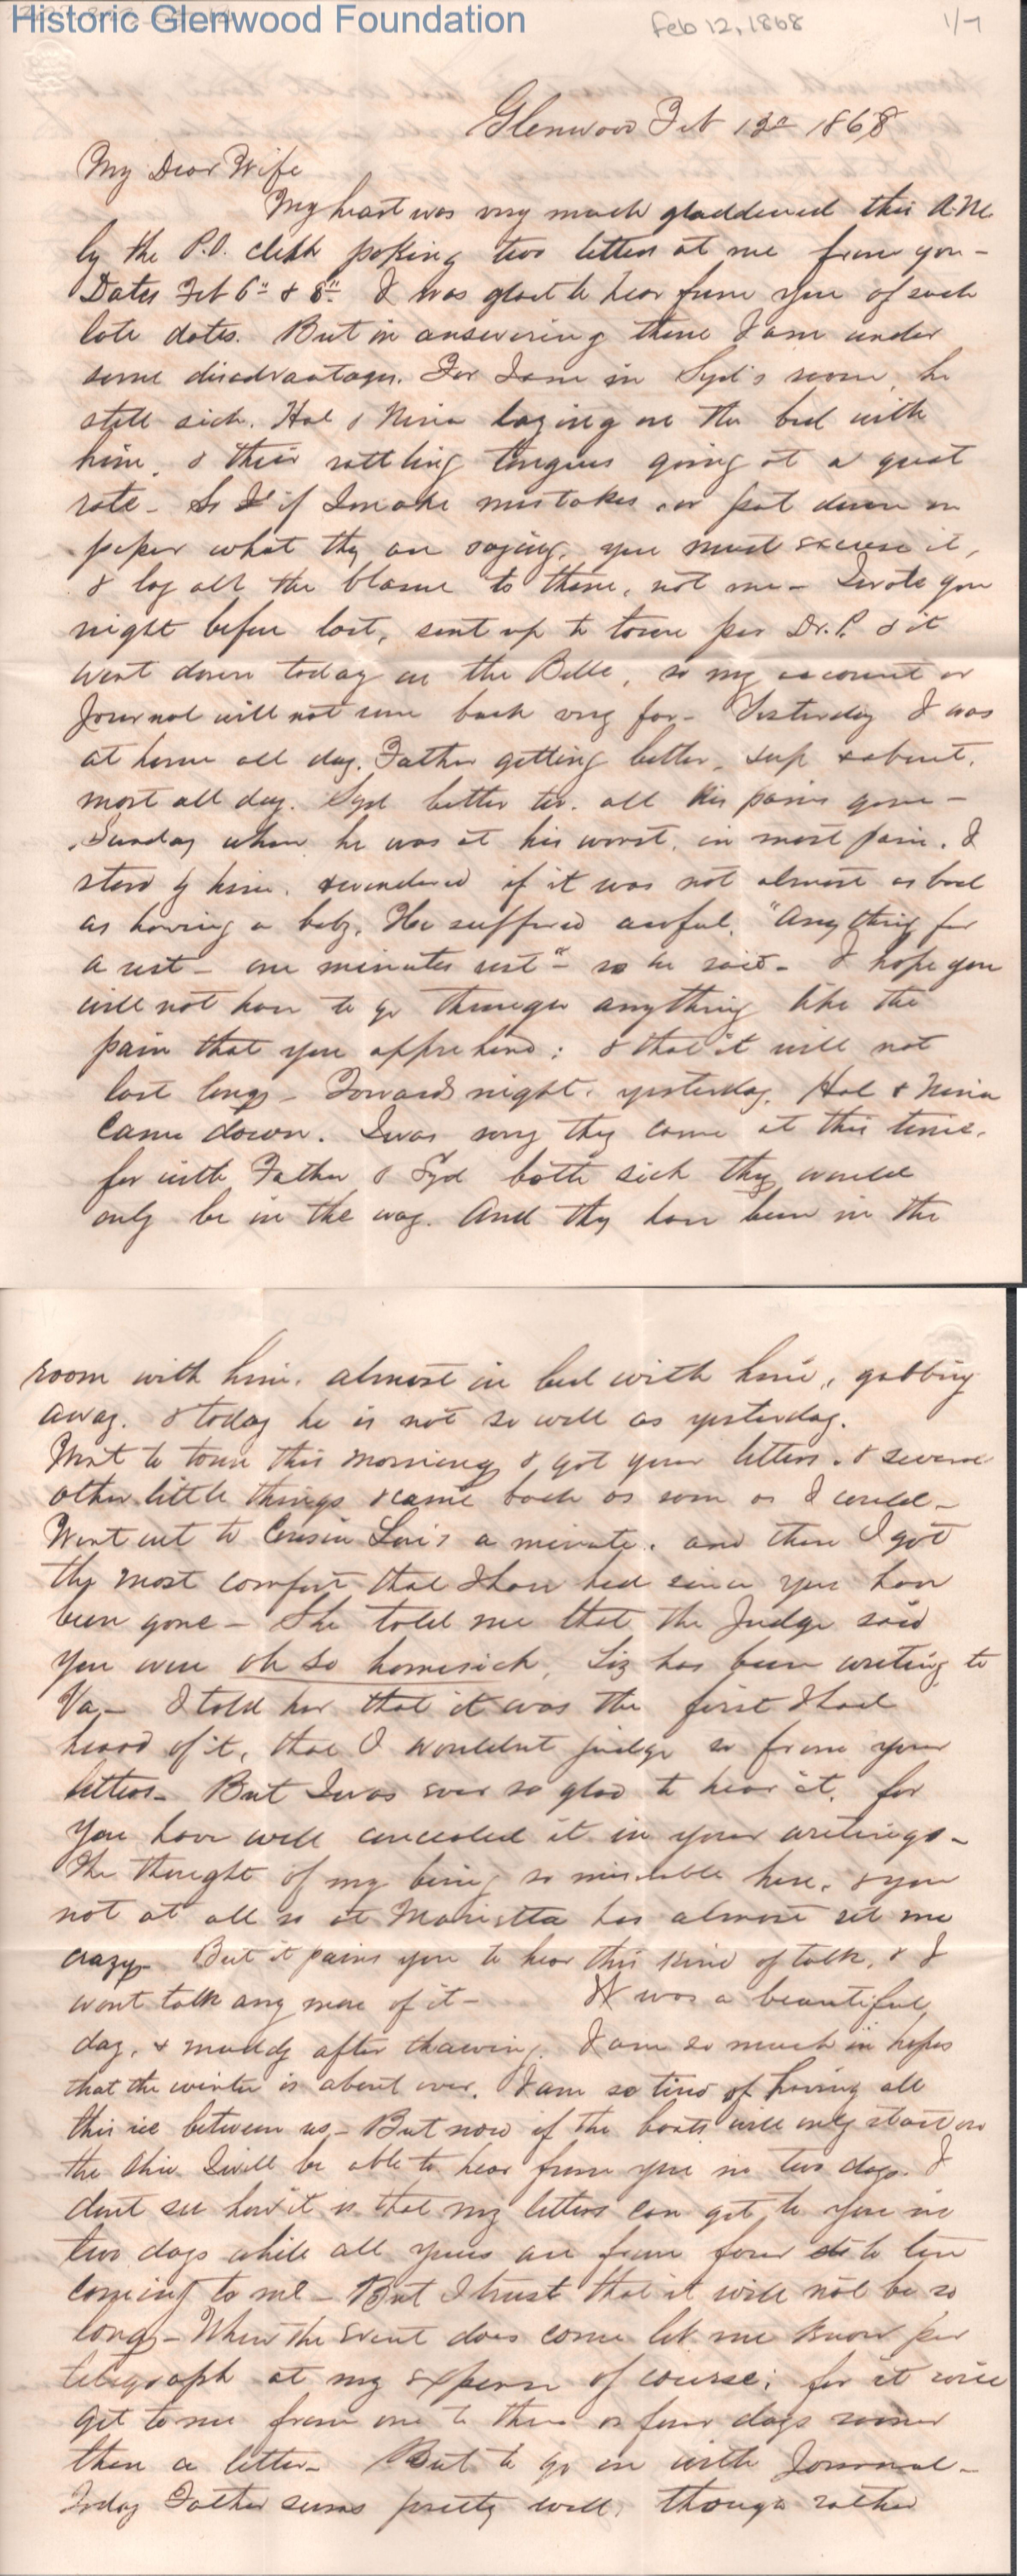 Historic Glenwood Foundation
Feb 12, 1868
1/7
Glenwood Feb 12th 1868
My Dear Wife
My heart was very much gladdened this A.M.
by the P.O. clerk poking two letters at me from you -
Dates Feb 6" & 8". I was glad to hear from you of such
late dates. But in answering them I am under
some disadvantages. For I am in Syd's room, he
still sick. Hal & Nina laying on the bed with
him, & their rattling tongues going at a great
rate - So if I make mistakes, or put down on
paper what they are saying, you must excuse it,
& lay all the blame to them, not me - I wrote you
night before last, sent up to town per Dr. P. & it
went down today on the Belle, so my account or
Journal will not run back very far - Yesterday I was
at home all day. Father getting better, up & about,
most all day. Syd better too. all his pains gone -
Sunday when he was at his worst, in most pain, I
stood by him, & wondered if it was not almost as bad
as having a baby. He suffered awful. "Anything for
a rest - one minutes rest" - so he said - I hope you
will not have to go through anything like the
pain that you apprehend; & that it will not
last long - Towards night, yesterday, Hal & Nina
came down. I was sorry they came at this time,
for with Father & Syd both sick they would
only be in the way. And they have been in the
room with him, almost in bed with him, gabbing
away. & today he is not so well as yesterday.
Went to town this morning & got your letters, & several
other little things & came back as soon as I could -
Went out to Cousin Lou's a minute, and there I got
the most comfort that I have had since you have
been gone - She told me that the Judge said
you were oh so homesick, Liz has been writing to
Va. - I told her that it was the first I had
heard of it, that I wouldnt judge so from your
letters - But I was ever so glad to hear it, for
you have well concealed it in your writings -
The thought of my being so miserable here, & you
not at all so at Marietta has almost set me
crazy - But it pains you to hear this kind of talk, & I
wont talk any more of it - It was a beautiful
day, & muddy after thawing. I am so much in hopes
that the winter is about over. I am so tired of having all
this ice between us - But now if the boats will only start on
the Ohio I will be able to hear from you in two days. I
dont see how it is that my letters can get to you in
two days while all yours are from four to ten
coming to me - But I trust that it will not be so
long - When the event does come let me know per
telegraph at my expense of course; for it will
get to me from one to three or four days sooner
than a letter - But to go on with Journal -
Today Father seems pretty well, though rather